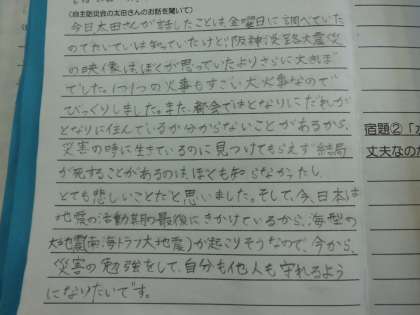 (自主防災会の太田さんのお話を聞いて)
今日太田さんが話したことは、金曜日に調べていた
のでだいたいは知っていたけど、阪神淡路大震災
の映像は、ぼくが思っていたよりさらに大きな
でした。1つ1つの火事もすごい大火事なので
びっくりしました。また、都会ではとなりにだれが
となりに住んでいるか分からないことがあるから、
災害の時に生きているのに見つけてもらえず結局
が死することがあるのは、ぼくも知らなかったし、
とても悲しいことだと思いました。そして、今、日本は
地震の活動期の最後にきかけているから、海型の
大地震(南海トラフ大地震)が起こりそうなので、今から、
災害の勉強をして、自分も他人も守れるよう
になりたいです。
宿題②「水
丈夫なのた